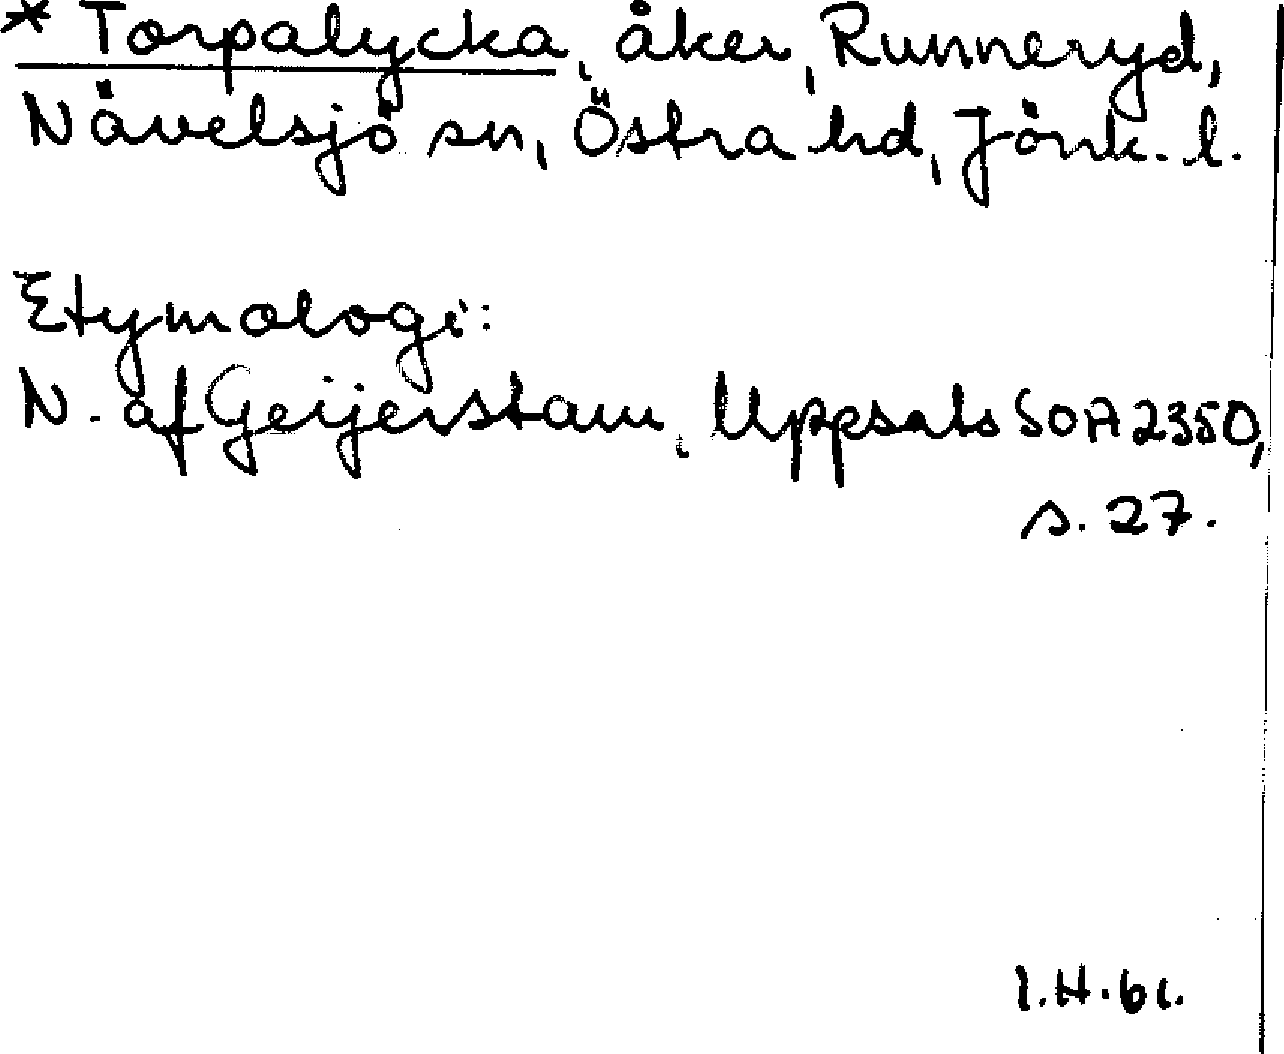 * Torpalycka, åker, Runneryd,
Nävelsjö sn, Östra hd, Jönk. l.
Etymologi:
N. af Geijerstam, Uppsats SOA 2350,
s. 27.
I.H. 61.